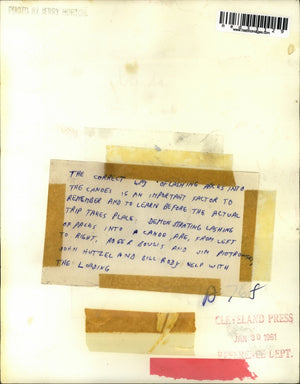 PHOTO BY JERRY HORTON
THE CORRECT WAY OF LASHING PACKS INTO
THE CANOES IS AN IMPORTANT FACTOR TO
REMEMBER AND TO LEARN BEFORE THE ACTUAL
TRIP TAKES PLACE. DEMONSTRATING LASHING
OF PACKS INTO A CANOE ARE, FROM LEFT
TO RIGHT, ROGER AND JIM
JOHN HUTZEL AND BILL ROBY HELP WITH
THE LOADING
CLEVELAND PRESS
JAN 30 1961
REFERENCE DEPT.